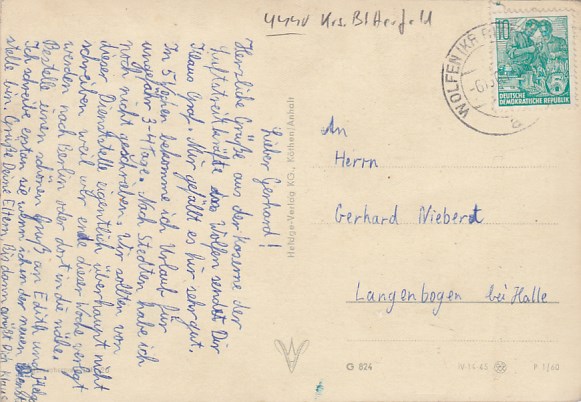 4440 Krs. Bitterfeld
10
DEUTSCHE
DEMOKRATISCHE REPUBLIK
WOLFEN (KR. B
Lieber Gerhard!
Herzliche Grüße aus der Kaserne der
Luftstreitkräfte das Wolfen sendet Dir
Klaus Graf. Mir gefällt es hir sehr gut.
In 5 Wochen bekomme ich Urlaub für
ungefähr 3-4 Tage. Nach Stedten habe ich
noch nicht geschrieben. Wir sollten von
dieser Dienststelle eigentlich überhaupt nicht
schreiben weil wir ende dieser Woche verlegt
werden nach Berlin oder dort in die nähe.
Bestelle einen schönen Gruß an Edith und Helga
Ich schreibe ersten sie wenn ich in der neuen Dienst
stelle bin. Grüße Deine Eltern. Bis dann grüßt Dich Klaus
Heldge-Verlag KG., Köthen/Anhalt
An
Herrn
Gerhard Niebert
Langenbogen bei Halle
G 824
III 14 45
P 1/60